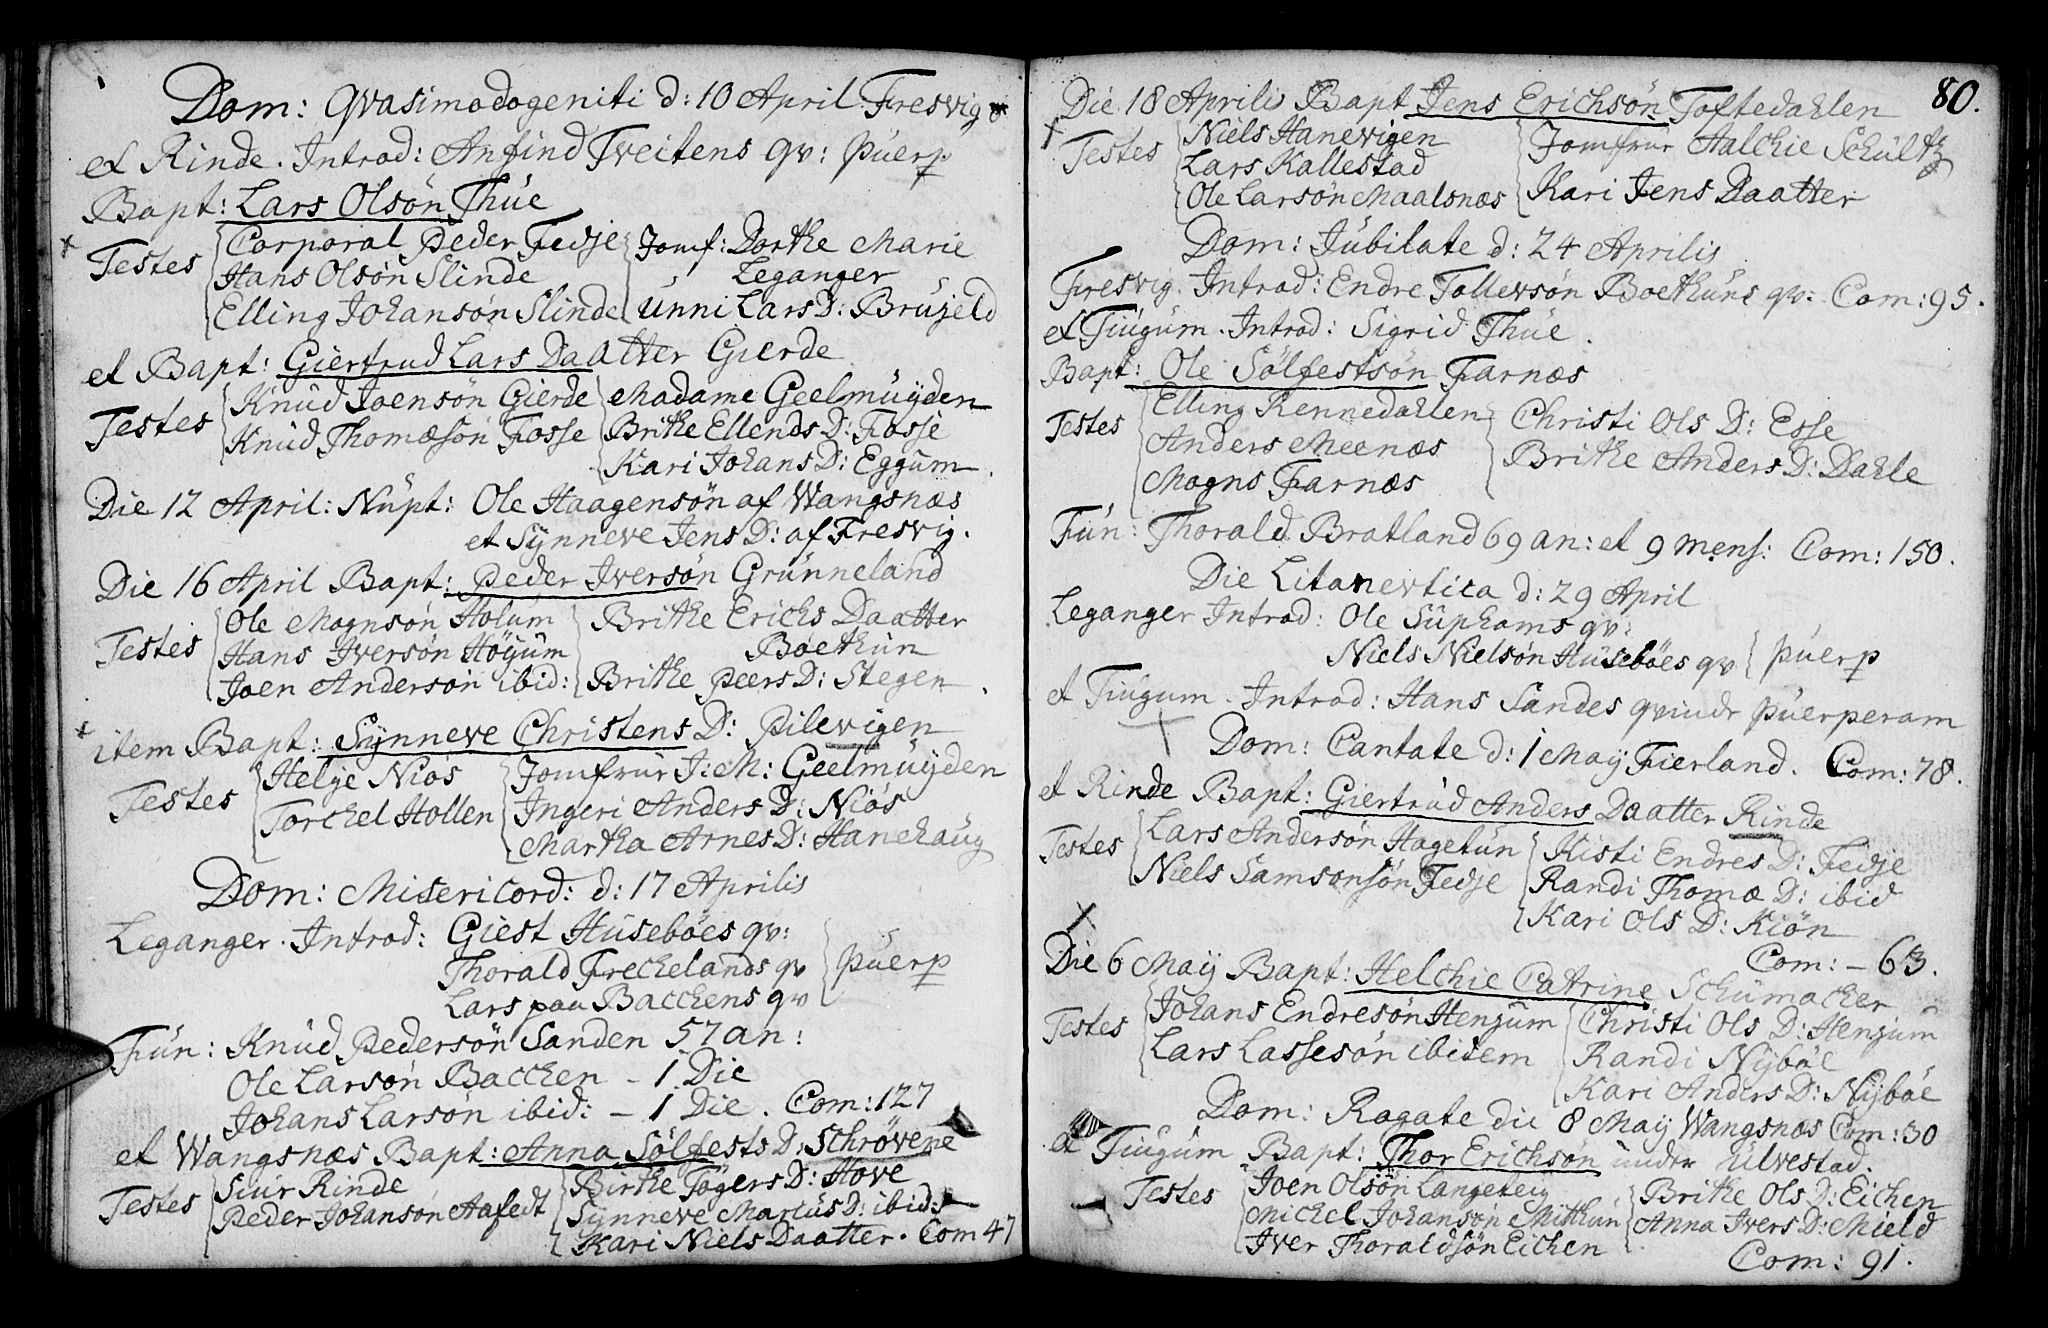 Dom: Qvasimodogeniti d: 10 April Fresvig
et Rinde. Introd: Anfind Tveitens qv: puerp
Bapt: Lars Olsön Thue
Testes Corporal Peder Fedje Jomf: Dorthe Marie
Hans Olsön Slinde Leganger
Elling Johansön Slinde Unni Lars D: Brufeld
et Bapt: Giertrud Lars Daatter Gierde
Testes Knud Joensön Gierde Madame Geelmuyden
Knud Thomæsön Fosse Brithe Ellends D: Fosse
Kari Johans D: Eggum
Die 12 April: Nupt: Ole Haagensön af Wangsnæs
et Synneve Jens D: af Fresvig.
Die 16 April Bapt: Peder Iversön Grinneland
Testes Ole Mognsön Holum Brithe Erichs Daatter
Hans Iversön Höyum Boethun
Joen Andersön ibid: Brithe Peers D: Stegen.
item Bapt: Synneve Christens D: Pilevigen
Testes Helje Niøs Jomfrur J: M: Geelmuyden
Torchel Hollen Ingeri Anders D: Niøs
Martha Arnes D: Hanehaug
Dom: Misericord: d: 17 Aprilis
Leganger. Introd: Giest Husebøes qv:
Thorald Frechelands qv puerp
Lars paa Bacchens qv
Fun: Knud Pedersön Sanden 57 an:
Ole Larsön Bacchen – 1 Die
Johans Larsön ibid: – 1 Die. Com: 127
et Wangsnæs Bapt: Anna Sölfests D: Schrövene
Testes Siur Rinde Birthe Fögers D: Hove
Peder Johansön Aafedt Synneve Marcus D: ibid:
Kari Niels Daatter. Com 47
80.
Die 18 Aprilis Bapt Jens Erichsön Toftedahlen
Testes Niels Hanevigen Jomfrur Halchie Schultz
Lars Kallestad Kari Jens Daatter
Ole Larsön Maalsnæs
Dom: Jubilate d: 24 Aprilis
Fresvig. Introd: Endre Tollevsön Boethuns qv: Com: 95.
et Tiugum. Introd: Sigrid Thue.
Bapt: Ole Sölfestsön Farnæs
Testes Elling Rennedahlen Christi Ols D: Esse
Anders Meenæs Brithe Anders D: Dahle
Mogns Farnæs
Fun: Thorald Bratland 69 an: et 9 mens: Com: 150.
Die Litanevtica d: 29 April
Leganger Introd: Ole Suphams qv:
Niels Nielsön Husebøes qv puerp
et Tiugum. Introd: Hans Sandes qvindr puerperam
Dom: Cantate d: 1 May Fierland. Com: 78.
et Rinde Bapt: Giertrud Anders Daatter Rinde
Testes Lars Andersön Hagetun Kisti Endres D: Fedje
Niels Samsonsön Fedje Randi Thomæ D: ibid
Kari Ols D: Kiön
Com: – 63.
Die 6 May Bapt: Helchie Catrine Schumacher
Testes Johans Endresön Henjum Christi Ols D: Henjum
Lars Lassesön ibitem Randi Nybøe
Kari Anders D: Nybøe
Dom: Rogate die 8 May Wangsnæs Com: 30
et Tiugum Bapt: Thor Erichsön under Ulvestad.
Testes Joen Olsön Langeteig Brithe Ols D: Eichen
Michel Johansön Mitthun Anna Ivers D: Mield
Iver Thoraldsön Eichen
Com: 91.